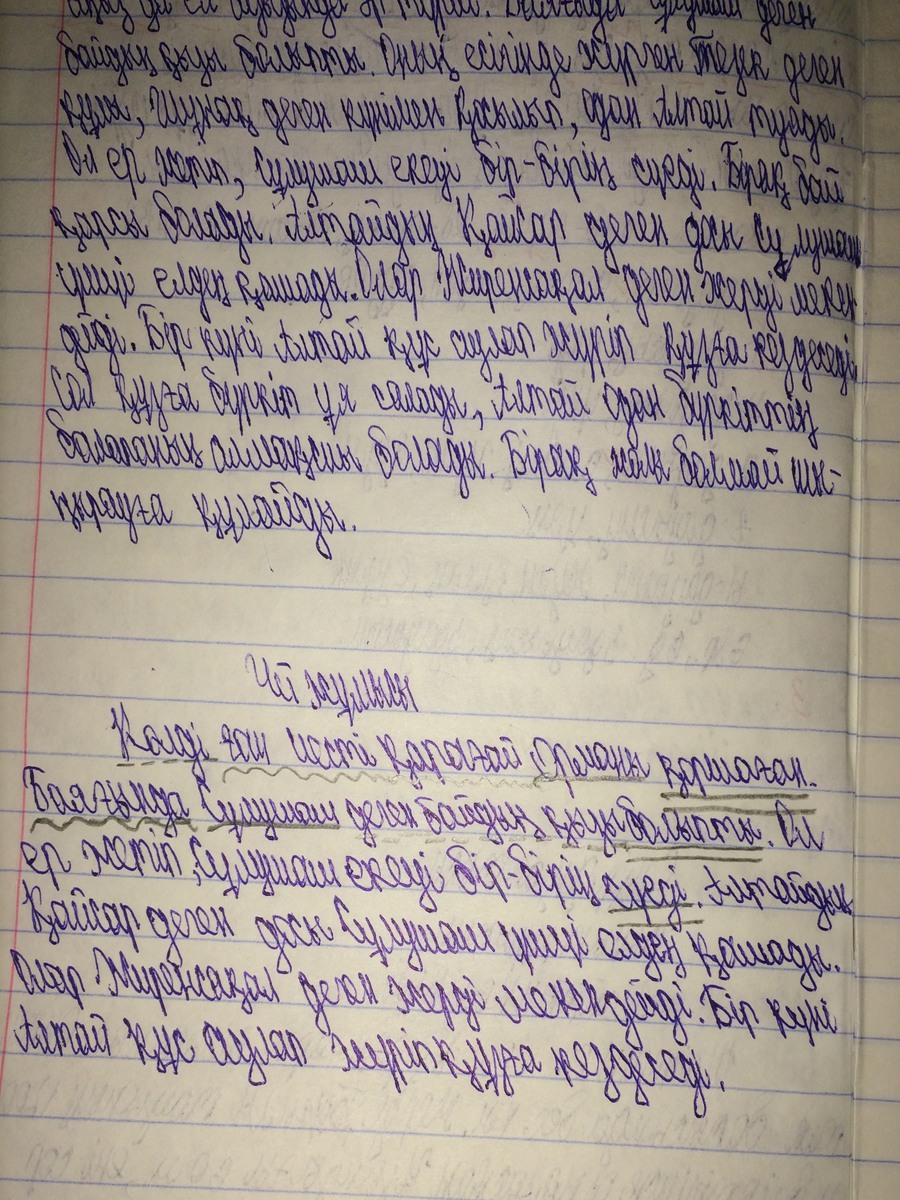 деген
байдың қызы болыпты. Оның есігінде жүрген Теук деген
құлы, Шұнақ деген күңімен қосылып, одан Алтай туады.
Ол ер жетіп, Сұлушаш екеуі бір-бірің сүреді. Бірақ бай
қарсы болады. Алтайдың Қайсар деген досы Сұлушаш
үшін елден қашады. Олар Жиренсақал деген жерді мекен
дейді. Бір күні Алтай құс аулап жүріп құзға кездеседі
Сол құзға бүркіт ұя салады, Алтай одан бүркіттің
балапаның алмақшы болады. Бірақ жолы болмай шы-
ңырауға құлайды.
Үй жұмысы
Көлді ғап қарағай орманы қоршаған.
Баяғында Сұлушаш деген байдың қызы болыпты. Ол
ер жетіп, Сұлушаш екеуі бір-бірің сүреді. Алтайдың
Қайсар деген досы Сұлушаш үшін елден қашады.
Олар Жиренсақал деген жерді мекендейді. Бір күні
Алтай құс аулап жүріп құзға кездеседі.